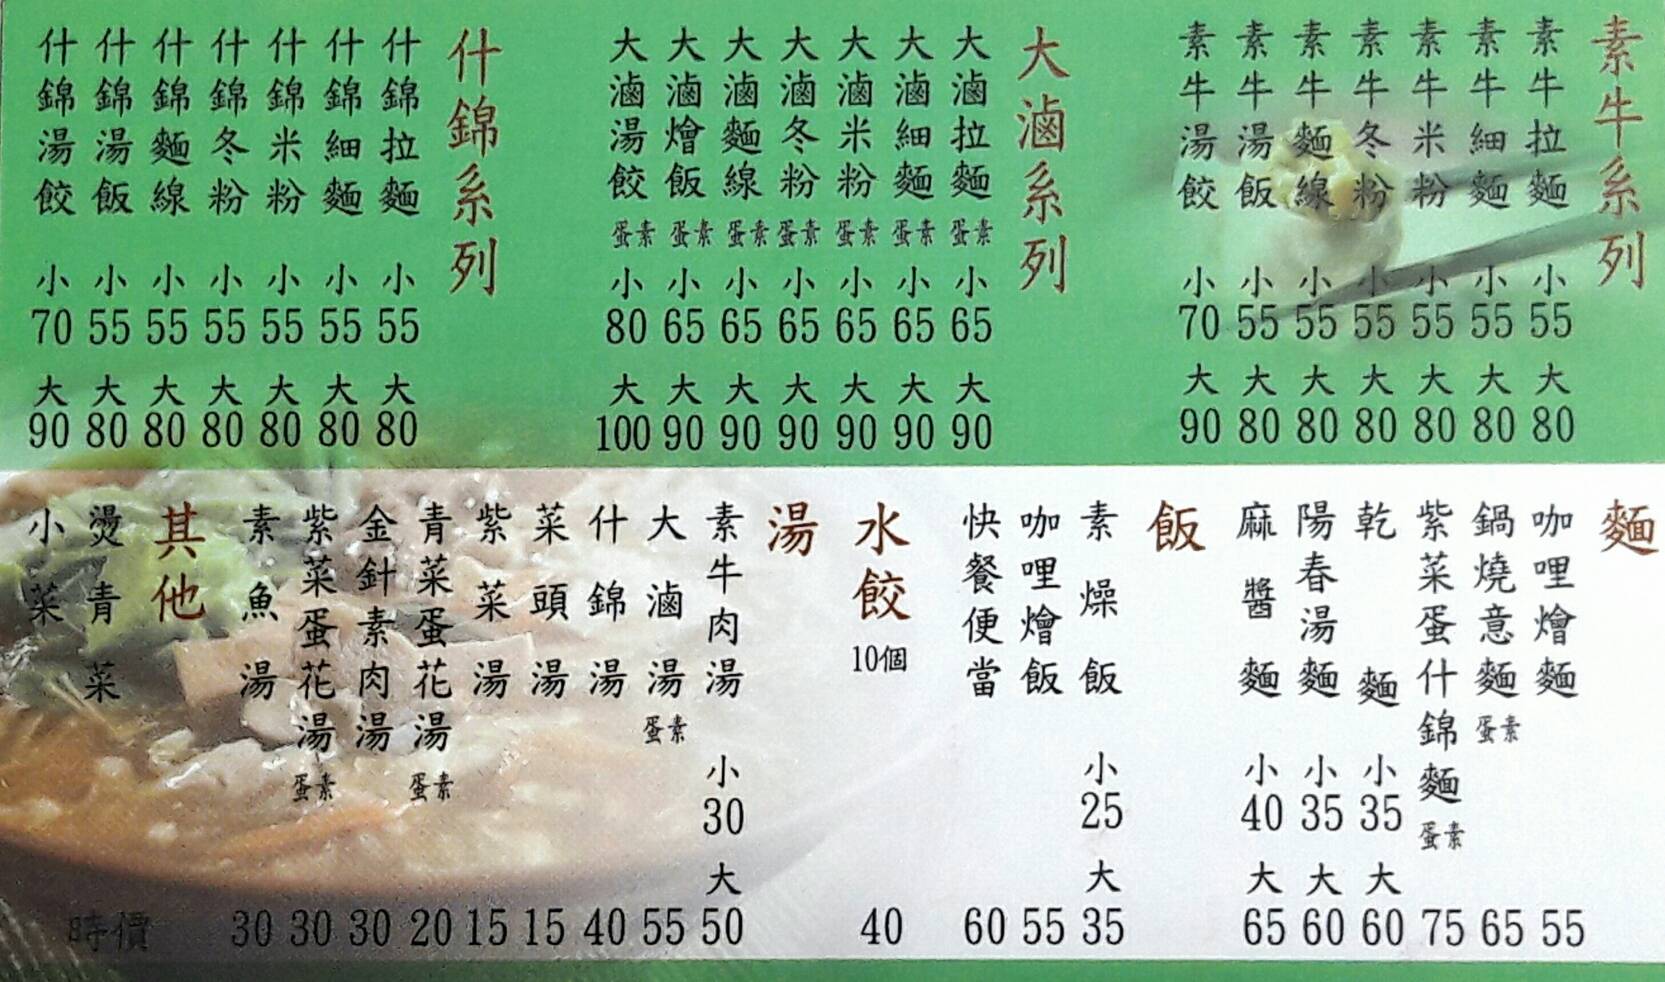 素牛系列
素牛拉麵 小55 大80
素牛細麵 小55 大80
素牛米粉 小55 大80
素牛冬粉 小55 大80
素牛麵線 小55 大80
素牛湯飯 小55 大80
素牛湯餃 小70 大90
大滷系列
大滷拉麵 蛋素 小65 大90
大滷細麵 蛋素 小65 大90
大滷米粉 蛋素 小65 大90
大滷冬粉 蛋素 小65 大90
大滷麵線 蛋素 小65 大90
大滷燴飯 蛋素 小65 大90
大滷湯餃 蛋素 小80 大100
什錦系列
什錦拉麵 小55 大80
什錦細麵 小55 大80
什錦米粉 小55 大80
什錦冬粉 小55 大80
什錦麵線 小55 大80
什錦湯飯 小55 大80
什錦湯餃 小70 大90
麵
咖哩燴麵 55
鍋燒意麵 蛋素 65
紫菜蛋什錦麵 蛋素 75
乾麵 小35 大60
陽春湯麵 小35 大60
麻醬麵 小40 大65
飯
素燥飯 小25 大35
咖哩燴飯 55
快餐便當 60
水餃 10個 40
湯
素牛肉湯 小30 大50
大滷湯 蛋素 55
什錦湯 40
菜頭湯 15
紫菜湯 15
青菜蛋花湯 蛋素 20
金針素肉湯 30
紫菜蛋花湯 蛋素 30
素魚湯 30
其他
燙青菜
小菜
時價